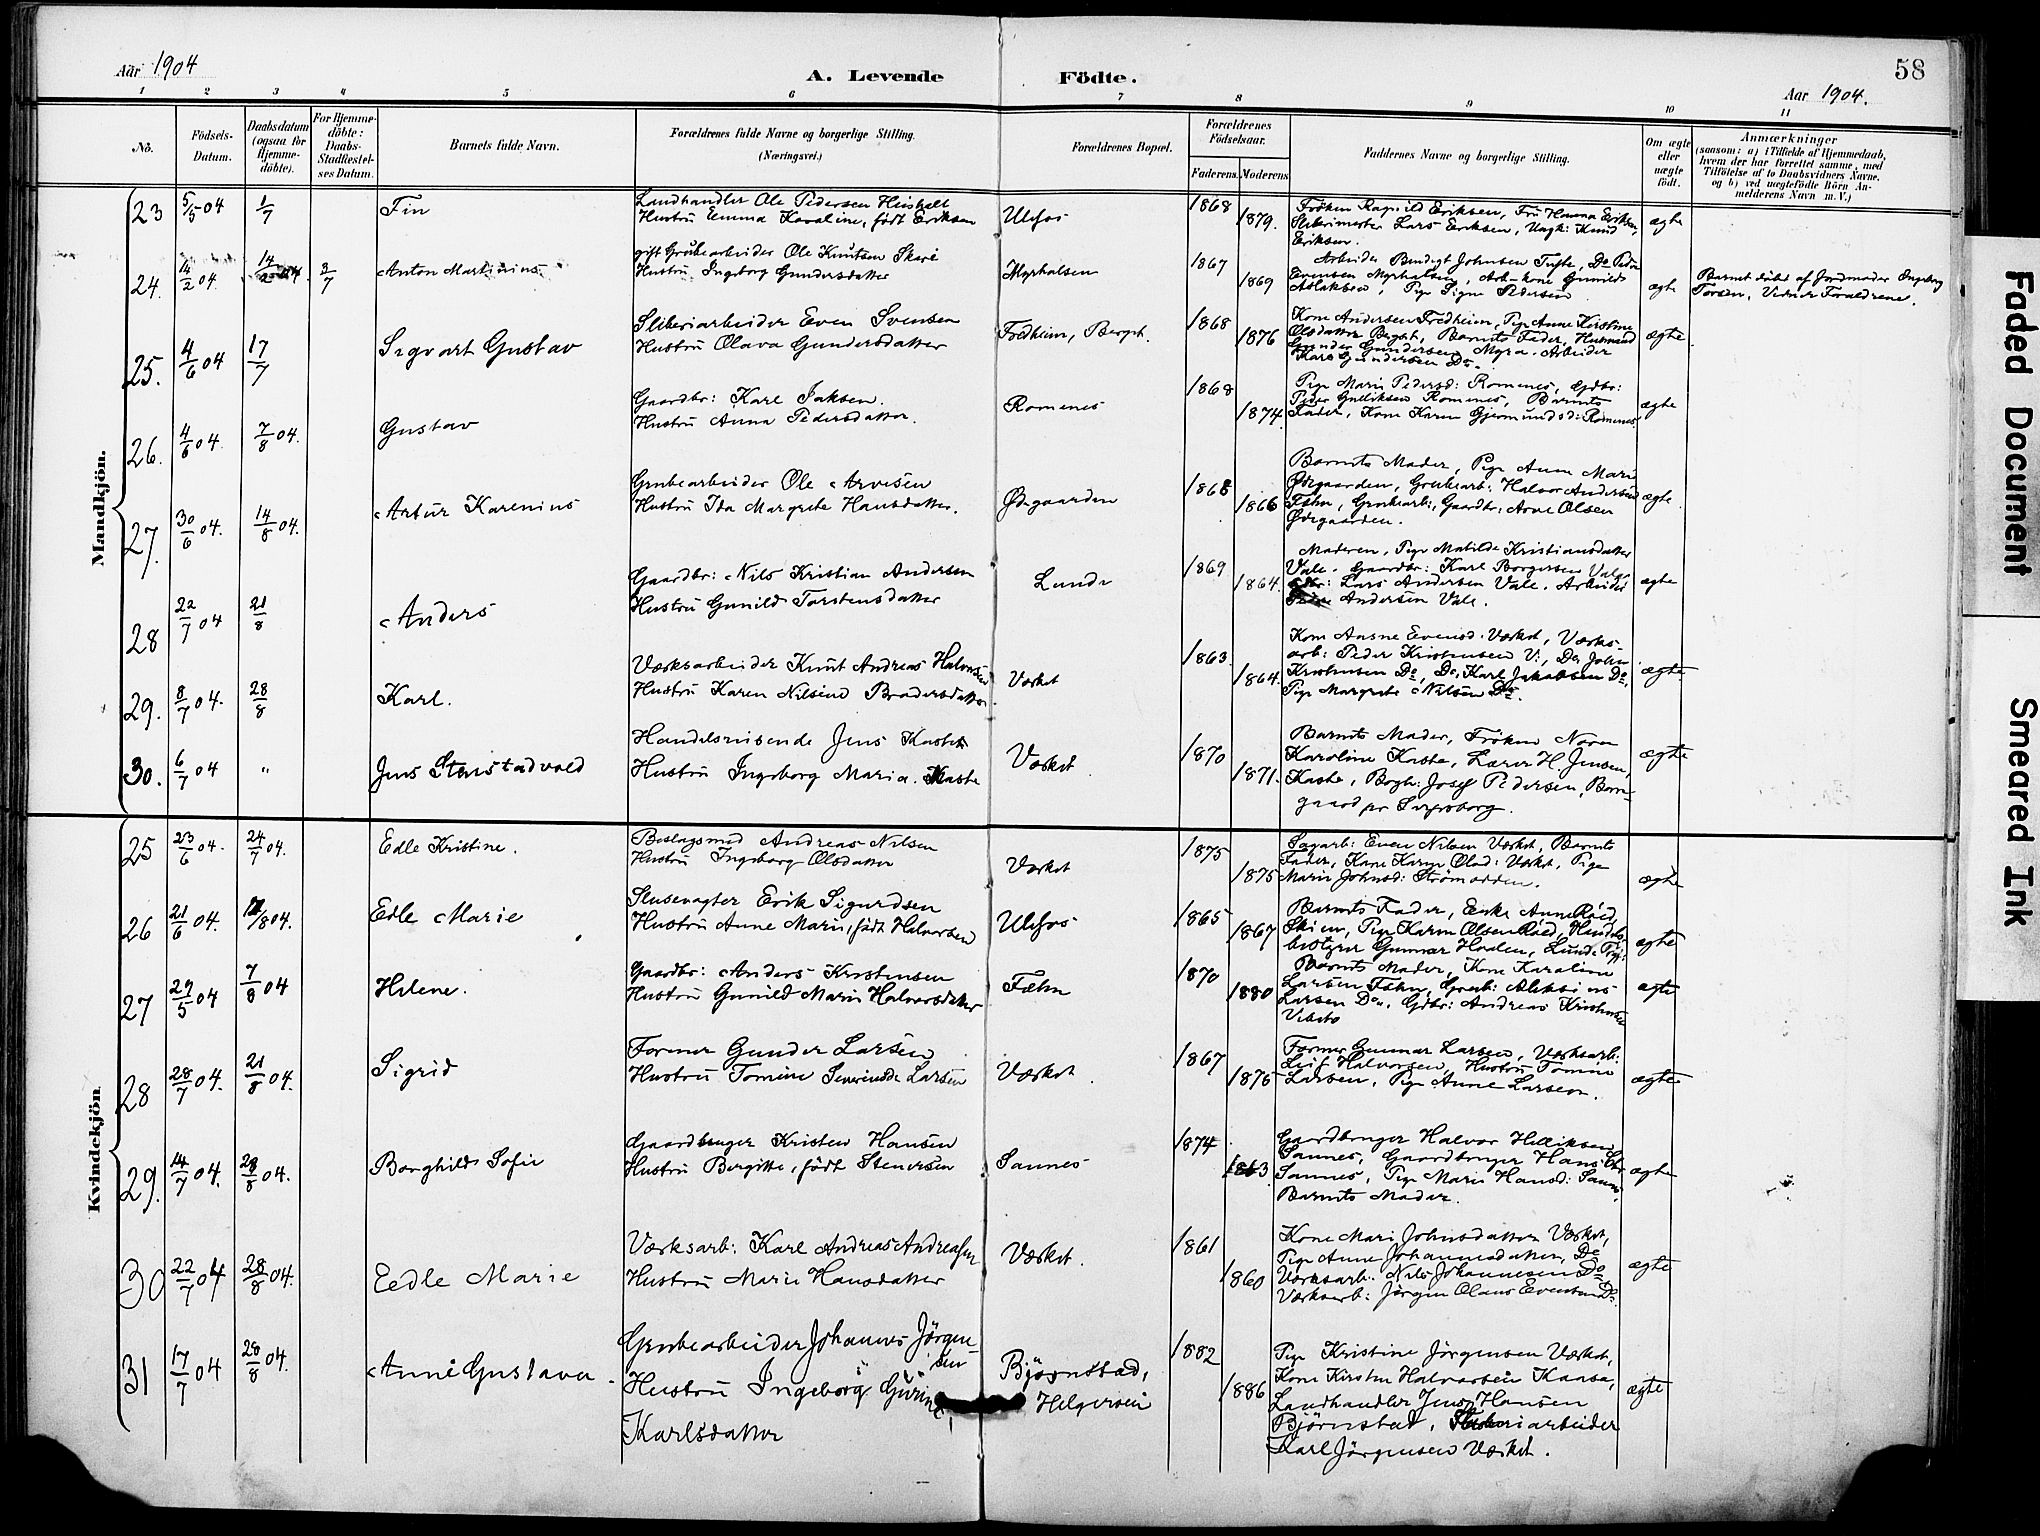 Aar 1904
A. Levende Födte.
58
Aar 1904.
1 2 3 4 5 6 7 8 9 10 11
No.
Födsels-
Datum.
Daabsdatum
(ogsaa for
Hjemme-
döbte).
For Hjemme-
döbte:
Daabs-
Stadfæstel-
ses Datum.
Barnets fulde Navn.
Forældrenes fulde Navne og borgerlige Stilling.
(Næringsvei.)
Forældrenes Bopæl.
Forældrenes
Födselsaar.
Faderens. Moderens
Faddernes Navne og borgerlige Stilling.
Om ægte
eller
uægte
födt.
Anmærkninger
(saasom: a) i Tilfælde af Hjemmedaab,
hvem der har forrettet samme, med
Tilföielse af to Daabsvidners Navne.
og b) ved uægtefödte Börn An-
melderens Navn m. V.)
Mandkjön.
23 5/5 04 1/7 Fin
Landhandler Ole Pedersen
Hustru Emma Karoline, født Eriksen
Ulefos 1868 1879.
Frøken Ragnild Eriksen, Fru Hanna Eriksen,
Sliberimester Lars Eriksen, Ungk: Knud
Eriksen.
ægte
24. 14/2 04. 14/2 04. 3/7 Anton Martinius
gift Grubearbeider Ole Knutsen
Hustru Ingeborg Gundersdatter
Myrhalsen 1867 1869
Arbeider Bendigt Johnsen Tufte, Do Peder
Evensen Myrhalsen, Arb. kone Gunild
Aslaksen, Pige Signe Pedersen
ægte
Barnet døbt af Jordmoder Ingeborg
Torsen, Vidner Forældrene.
25. 4/6 04 17/7 Sigvart Gustav
Sliberiarbeider Even Svensen
Hustru Olava Gundersdatter
Fredheim, Bergst. 1868 1876
Kone Andersen Fredheim, Pige Anne Kirstine
Olsdatter Bergst, Barnets Fader, Husmand
Gunder Gundersen Myra. Arbeider
Karl Gundersen Do.
ægte
26. 4/6 04. 7/8 04. Gustav
Gaardbr: Karl Isaksen.
Hustru Anna Pedersdatter.
Romenes 1868 1874.
Pige Marie Pedersd: Romenes, Gdbr:
Peder Gulliksen Romenes, Barnets
Fader, Kone Karen Gjermundsd: Romenes
ægte
27. 30/6 04. 14/8 04. Artur Karenius
Grubearbeider Ole Arvesen
Hustru Ida Margrete Hansdatter.
Ødegaarden 1868 1866
Barnets Moder, Pige Anne Marie
Ødegaarden, Grubearb: Halvor Andersen
Fæhn, Grubearb:, Gaardbr: Arne Olsen
Ødegaarden.
ægte
28 22/7 04 21/8 Anders
Gaardbr: Nils Kristian Andersen
Hustru Gunild Torstensdatter
Lunde 1869 1864.
Moderen, Pige Matilde Kristiansdatter
Vale. Gaardbr: Karl Borgersen Vale
Gdbr: Lars Andersen Vale. Arbeider
Andersen Vale.
ægte
29. 8/7 04. 28/8 Karl.
Værksarbeider Knut Andreas Halvorsen
Hustru Karen Nilsine Brodersdatter
Værket 1863 1864.
Kone Aasne Evensd. Værket, Værks-
arb: Peder Kristensen V:, Do. John
Kristensen Do, Do. Karl Jakobsen Do,
Pige Margrete Nilsen Do.
ægte
30. 6/7 04 " Jens Stenstadvold
Handelsreisende Jens Kaste
Hustru Ingeborg Maria Kaste
Værket 1870 1871.
Barnets Moder, Frøken Nora
Karoline Kaste, Lærer H. Jensen,
Kaste, Bogh: Josef Pedersen, Borre-
gaard pr Sarpsborg.
ægte
Kvindekjön.
25 23/6 04. 24/7 04. Edle Kristine.
Beslagsmed Andreas Nilsen
Hustru Ingeborg Olsdatter
Værket 1875 1875
Sagarb: Even Nilsen Værket, Barnets
Fader, Kone Karen Olsd: Værket, Pige
Marie Johnsd: Strømodden.
ægte
26 21/6 04. 17/8 04. Edle Marie
Slusevogter Erik Sigurdsen
Hustru Anne Marie, født Halvorsen
Ulefos 1865 1867
Barnets Fader, Enke Anne Røed,
Skien, Pige Karen Olsen Røed, Handels-
bestyrer Gunnar Hvalen, Lunde Pige:
ægte
27 29/5 04 7/8 04 Helene.
Gaardbr: Anders Kristensen
Hustru Gunild Marie Halvorsdatter
Fæhn 1870 1880
Barnets Moder, Kone Karoline
Larsen Fæhn, Gaardb: Aleksius
Larsen Do., Gdbr: Andreas Kristensen
Vibeto
ægte
28 28/7 04. 21/8 04. Sigrid
Former Gunder Larsen
Hustru Tomine Severinedr Larsen
Værket. 1867 1876
Former Gunnar Larsen, Værksarb:
Leif Halvorsen, Hustru Tomine
Larsen, Pige Anne Larsen.
ægte
29. 14/7 04. 28/8 04. Borghild Sofie
Gaardbruger Kristen Hansen
Hustru Birgitte, født Stenersen
Sannes 1874 1863.
Gaardbruger Halvor Helliksen
Sannes, Gaardbruger Hans
Sannes, Pige Marie Hansd: Sannes,
Barnets Moder.
ægte
30 22/7 04 28/8 04. Eedle Marie
Værksarb: Karl Andreas Andreasen
Hustru Marie Hansdatter
Værket. 1861 1860
Kone Mari Johnsdatter Værket,
Pige Anne Johannesdatter, Do
Værksarb. Nils Johannesen Do
Værksarb: Jørgen Olaus Evensen Do.
ægte
31 17/7 04 28/8 04. Anne Gustava.
Grubearbeider Johannes Jørgen-
sen
Hustru Ingeborg Gurine
Karlsdatter
Bjørnstad,
Helgersen
1882 1886
Pige Kristine Jørgensen Værket,
Kone Kirsten Halvorsen Kaasa,
Landhandler Jens Hansen
Bjørnstad, Sliberiarbeider
Karl Jørgensen Værket.
ægte
Faded Document
Smeared Ink